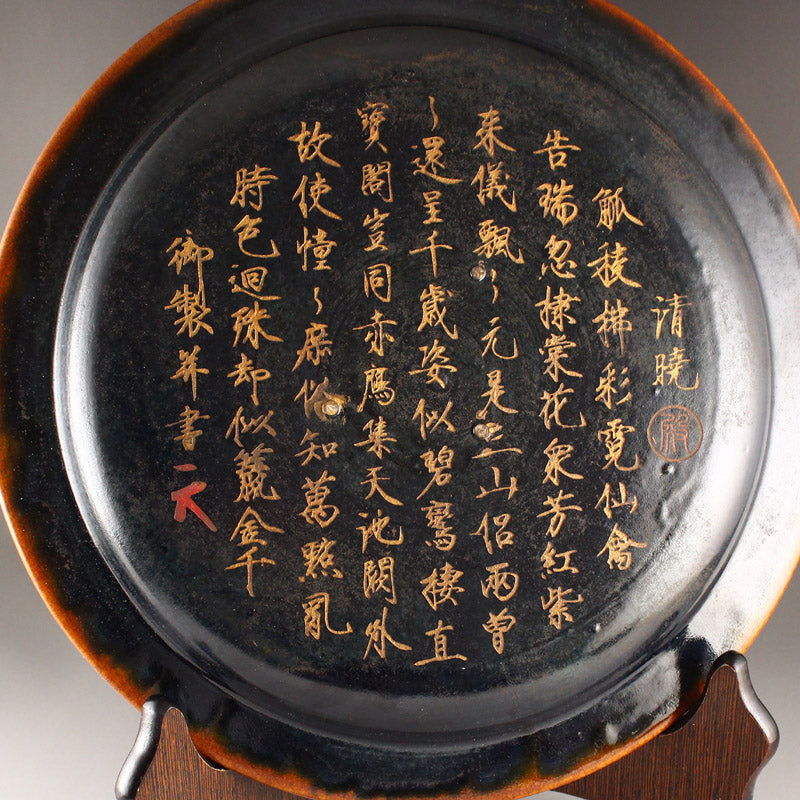 清曉
觚稜拂彩霓仙禽
告瑞忽棣棠花衆芳紅紫
来儀飄〻元是三山侶兩曾
〻還呈千歲姿似碧鸞棲直
寶閣豈同赤鴈集天池闕外
故使憧〻庶俗知萬點亂
時色迴殊却似簇金千
御製并書